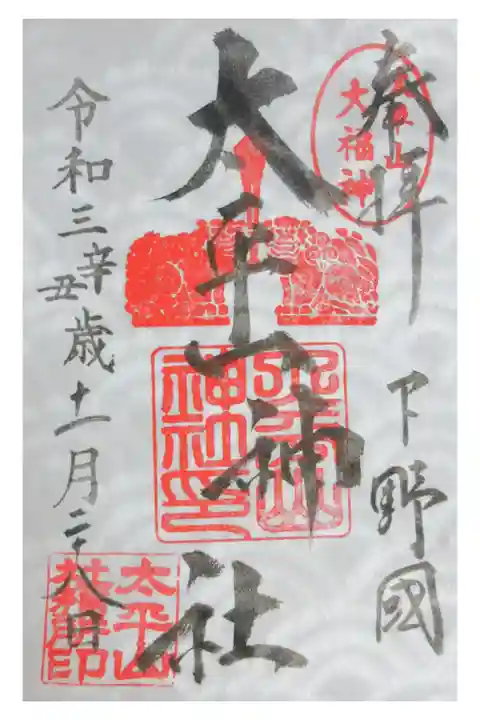 奉拝
下野國
太平山神社
令和三辛丑歳十一月二十八日
太平山
大福神
太平山
神社印
太平山
社務所印